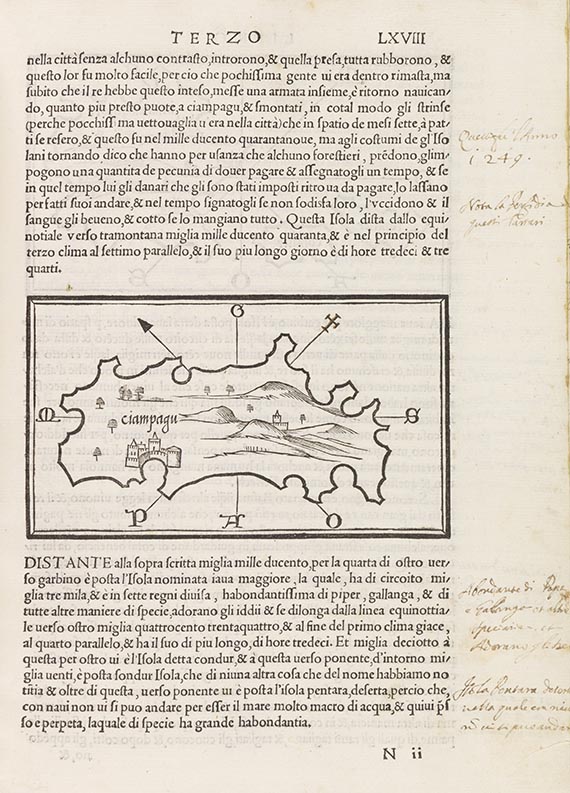 TERZO LXVIII
nella città senza alchuno contrasto, introrono, & quella presa, tutta rubborono, &
questo lor fu molto facile, per cio che pochissima gente ui era dentro rimasta, ma
subito che il re hebbe questo inteso, messe una armata insieme, è ritorno nauican-
do, quanto piu presto puote, a ciampagu, & smontati, in cotal modo gli strinse
(perche pocchiss ma uettouaglia u'era nella città) che in spatio de mesi sette, à pat-
ti se resero, & questo fu nel mille ducento quarantanoue, ma agli costumi de gl'Iso
lani tornando, dico che hanno per usanza che alchuno forestieri, prēdono, glim-
pogono una quantita de pecunia di douer pagare & assegnatogli un tempo, & se
in quel tempo lui gli danari che gli sono stati imposti ritroua da pagare, lo lassano
per fatti suoi andare, & nel tempo signatogli se non sodisfa loro, l'vccidono & il
sangue gli beueno, & cotto se lo mangiano tutto. Questa Isola dista dallo equi-
notiale verso tramontana miglia mille ducento quaranta, & è nel principio del
terzo clima al settimo parallelo, & il suo piu longo giorno è di hore tredeci & tre
quarti.
Nota la
questi
1249.
G
M
ciampagu
S
P A O
DISTANTE alla sopra scritta miglia mille ducento, per la quarta di ostro uer-
so garbino è posta l'Isola nominata iaua maggiore, la quale, ha di circoito mi-
glia tre mila, & è in sette regni diuisa, habondantissima di piper, gallanga, & di
tutte altre maniere di specie, adorano gli iddii & se dilonga dalla linea equinottia-
le uerso ostro miglia quattrocento trentaquattro, & al fine del primo clima giace,
al quarto parallelo, & ha il suo di piu longo, di hore tredeci. Et miglia deciotto à
questa per ostro ui è l'Isola detta condur, & à questa uerso ponente, d'intorno mi-
glia uenti, è posta sondur Isola, che di niuna altra cosa che del nome habbiamo no
titia & oltre di questa, uerso ponente ui è posta l'isola pentara, deserta, percio che,
con naui non ui si puo andare per esser il mare molto macro di acqua, & quiui p̄s
so e perpeta, la quale di specie ha grande habondantia.
N ii